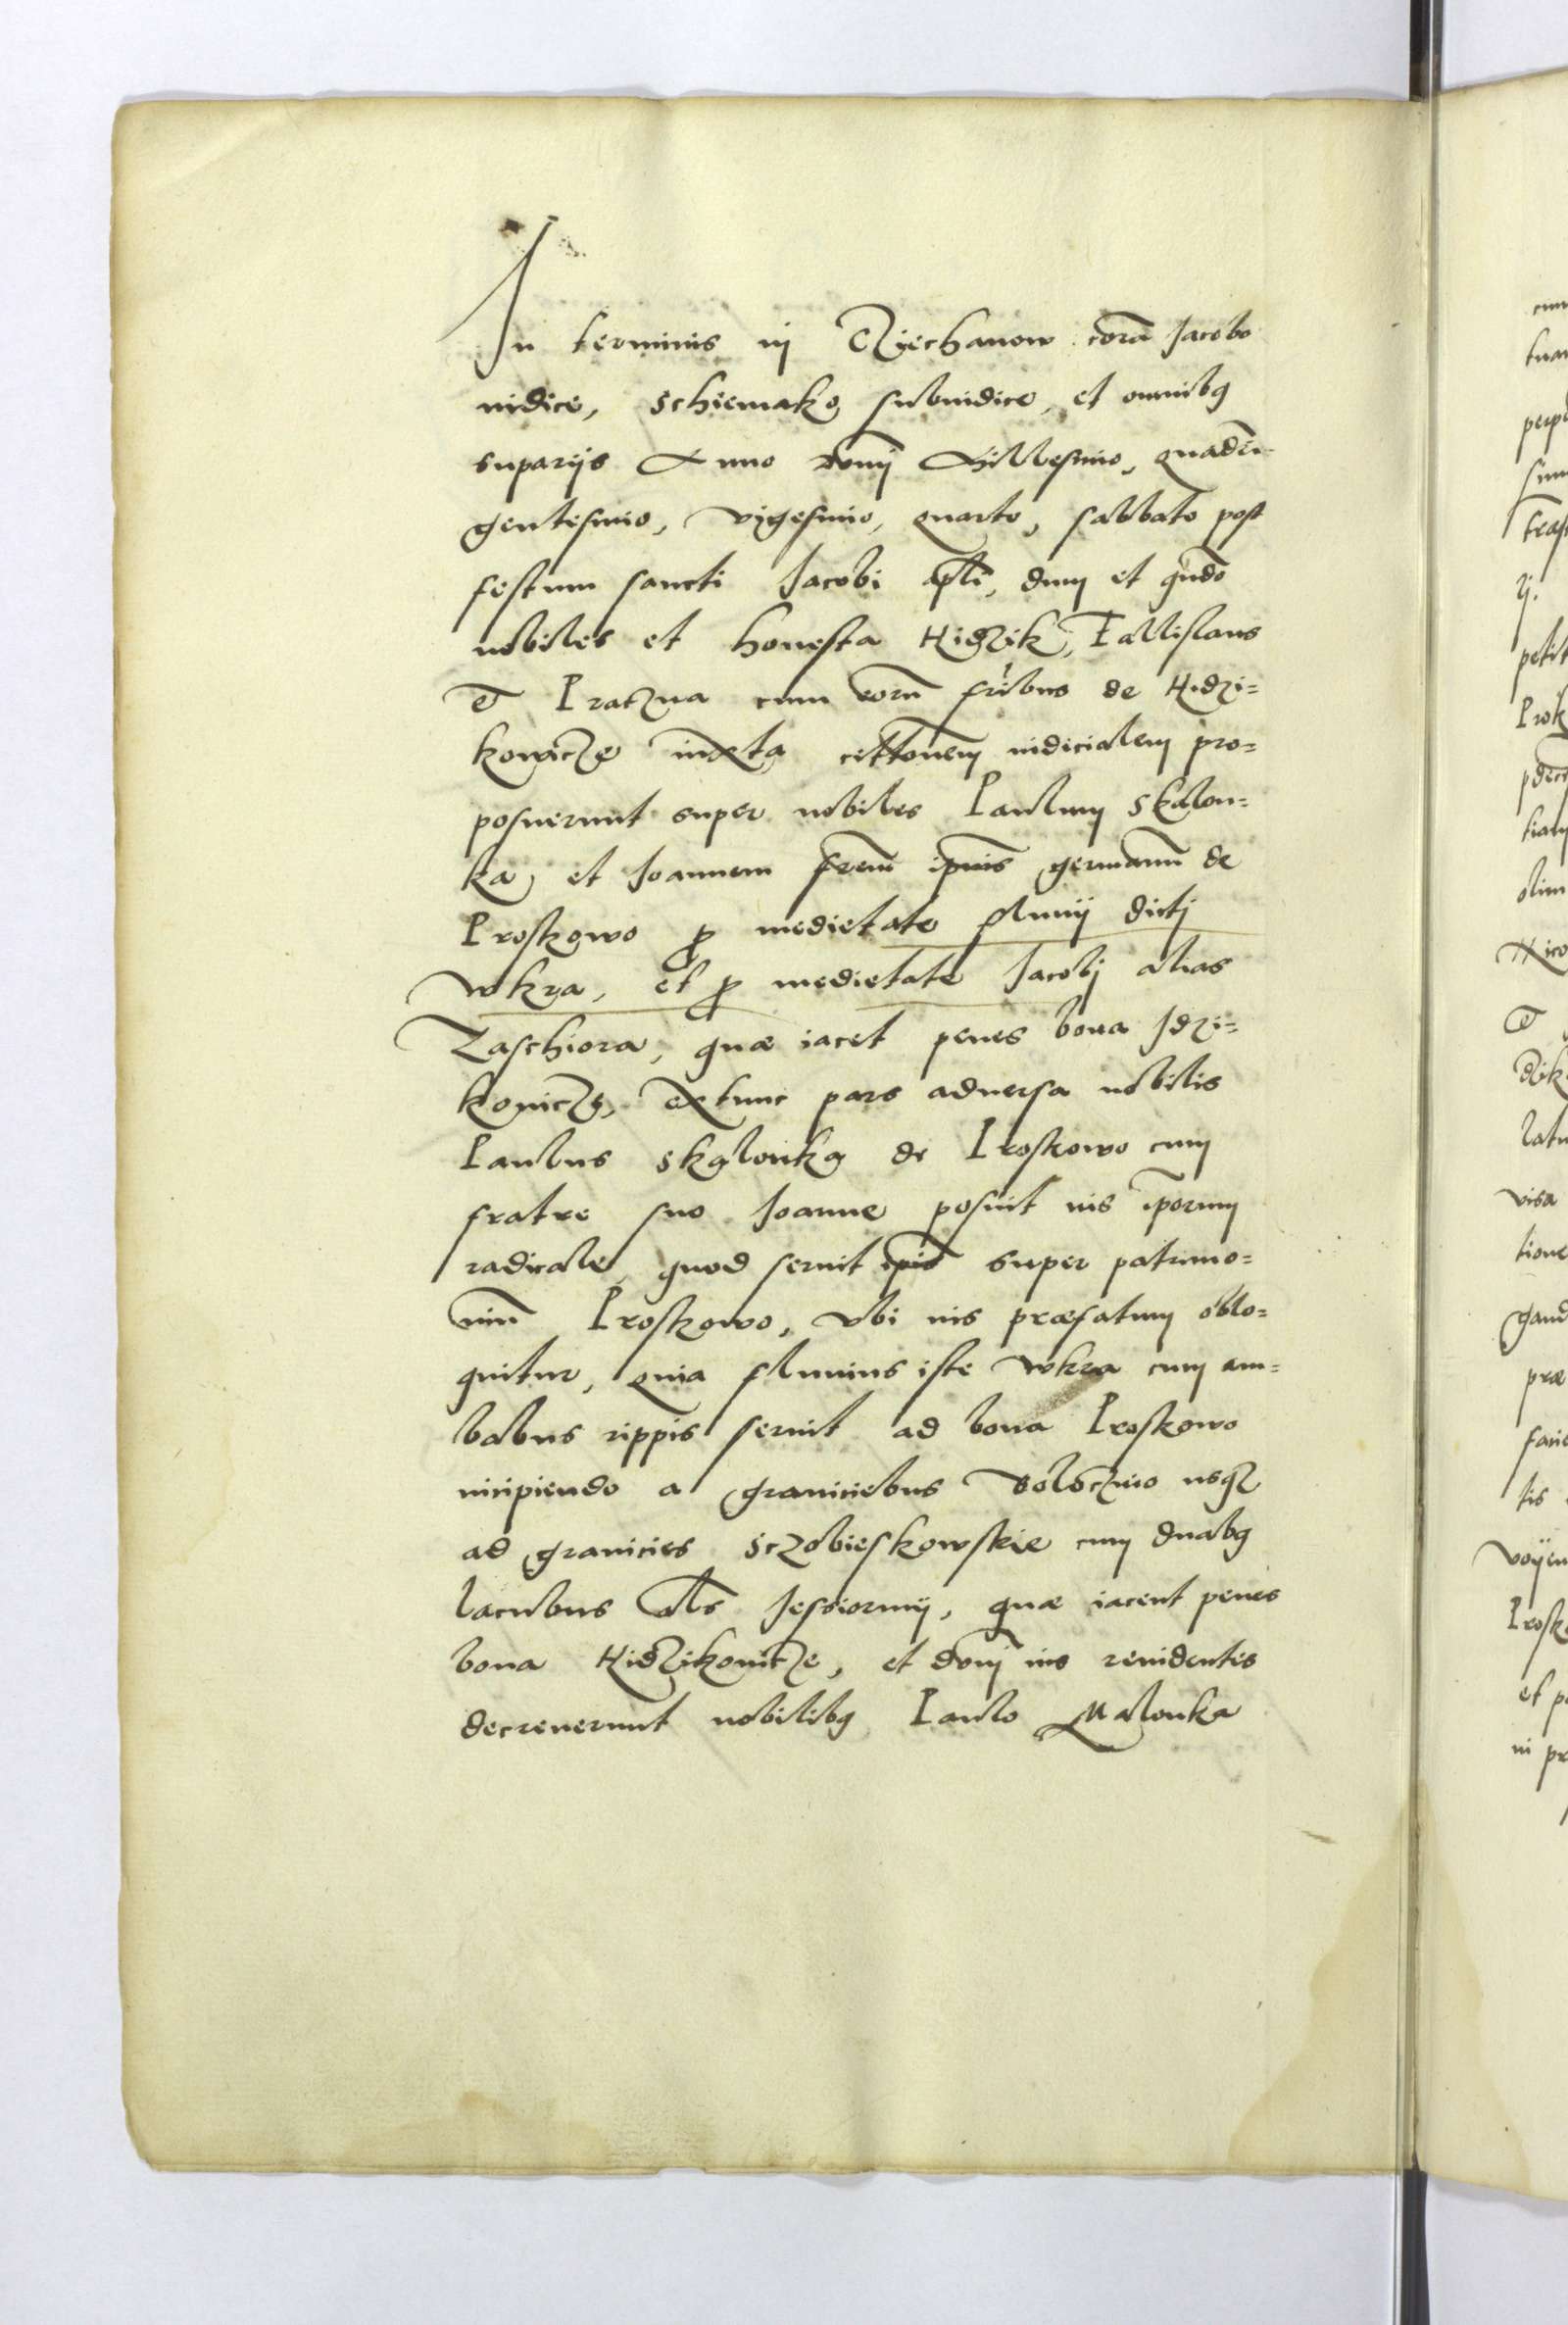 In terminis in Cziechanow corā Jacobo
iudice, Schiemako subiudice, et omnibq
suparijs Anno domī Millesimo, quadrī-
gentesimo, vigesimo, quarto, sabbato post
festum sancti Jacobi apłi, dum et qn̄do
nobiles et honesta Hidzik, Fallislaus
et Praczna cum eorū frībus de Hidzi=
kowicze iuxta cittōnem iudicialem pro=
posuerunt super nobiles Paulum Skalon=
ka, et Joannem frem ip̄ius germanū de
Proskowo p medietate fluuij dicti
Wkra, et p medietate Jacobj alias
Zaschiora, quæ iacet penes bona Jdzi=
kouicze, extunc pars aduersa nobilis
Paulus Skalonka de Proskowo cum
fratre suo Joanne posuit ius ip̄orum
radicale, quod seruit ip̄is super patrimo=
niū Proskowo, vbi ius præfatum oblo=
quitur, quia fluuius iste Wkra cum am=
babus rippis seruit ad bona Proskowo
incipiendo a graniciebus Voloczino usq3
ad granicies Sczobieskowskie cum duabq
lacubus als Jessiormij, quæ iacent penes
bona Hidzikouicze, et domī ius reuidentes
decreuerunt nobilibq Paulo Malonka